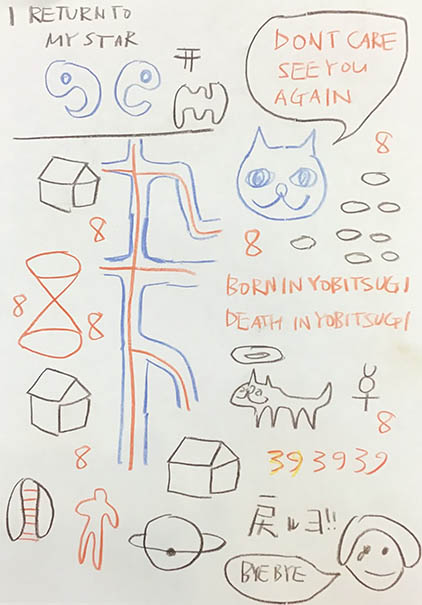 I RETURN TO
MY STAR
DONT CARE
SEE YOU
AGAIN
8
8
8
8
8
BORN IN YOBITSUGI
DEATH IN YOBITSUGI
8
8
39 39 39
戻ルヨ!!
BYE BYE